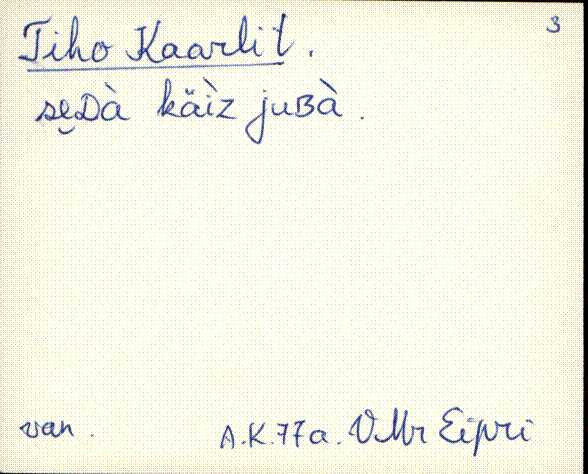 3
Tiho Kaarlit.
sẹᴅà käìz juʙà.
van. A.K. 77a. VMr Eipri